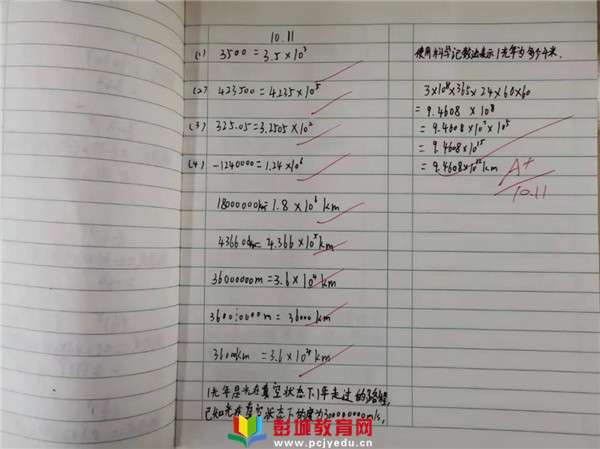 10.11
(1) 3500 = 3.5 × 10³
(2) 423500 = 4.235 × 10⁵
(3) 325.05 = 3.2505 × 10²
(4) -1240000 = 1.24 × 10⁶
1.8 × 10⁶ km
4.366 × 10⁵ km
36000000m = 3.6 × 10⁴ km
36000000m = 36000 km
36000km = 3.6 × 10⁴
1光年是光在真空状态下1年走过的路程,
已知光在真空状态下的度为300000000m/s,
使用科学记数法表示1光年为多少千米.
3×10⁸×365×24×60×60
= 9.4608 × 10⁸
= 9.4608 × 10⁷ × 10⁸
= 9.4608 × 10¹⁵
= 9.4608 × 10¹² km
A+
10.11
彭城教育网
www.pcjyedu.cn